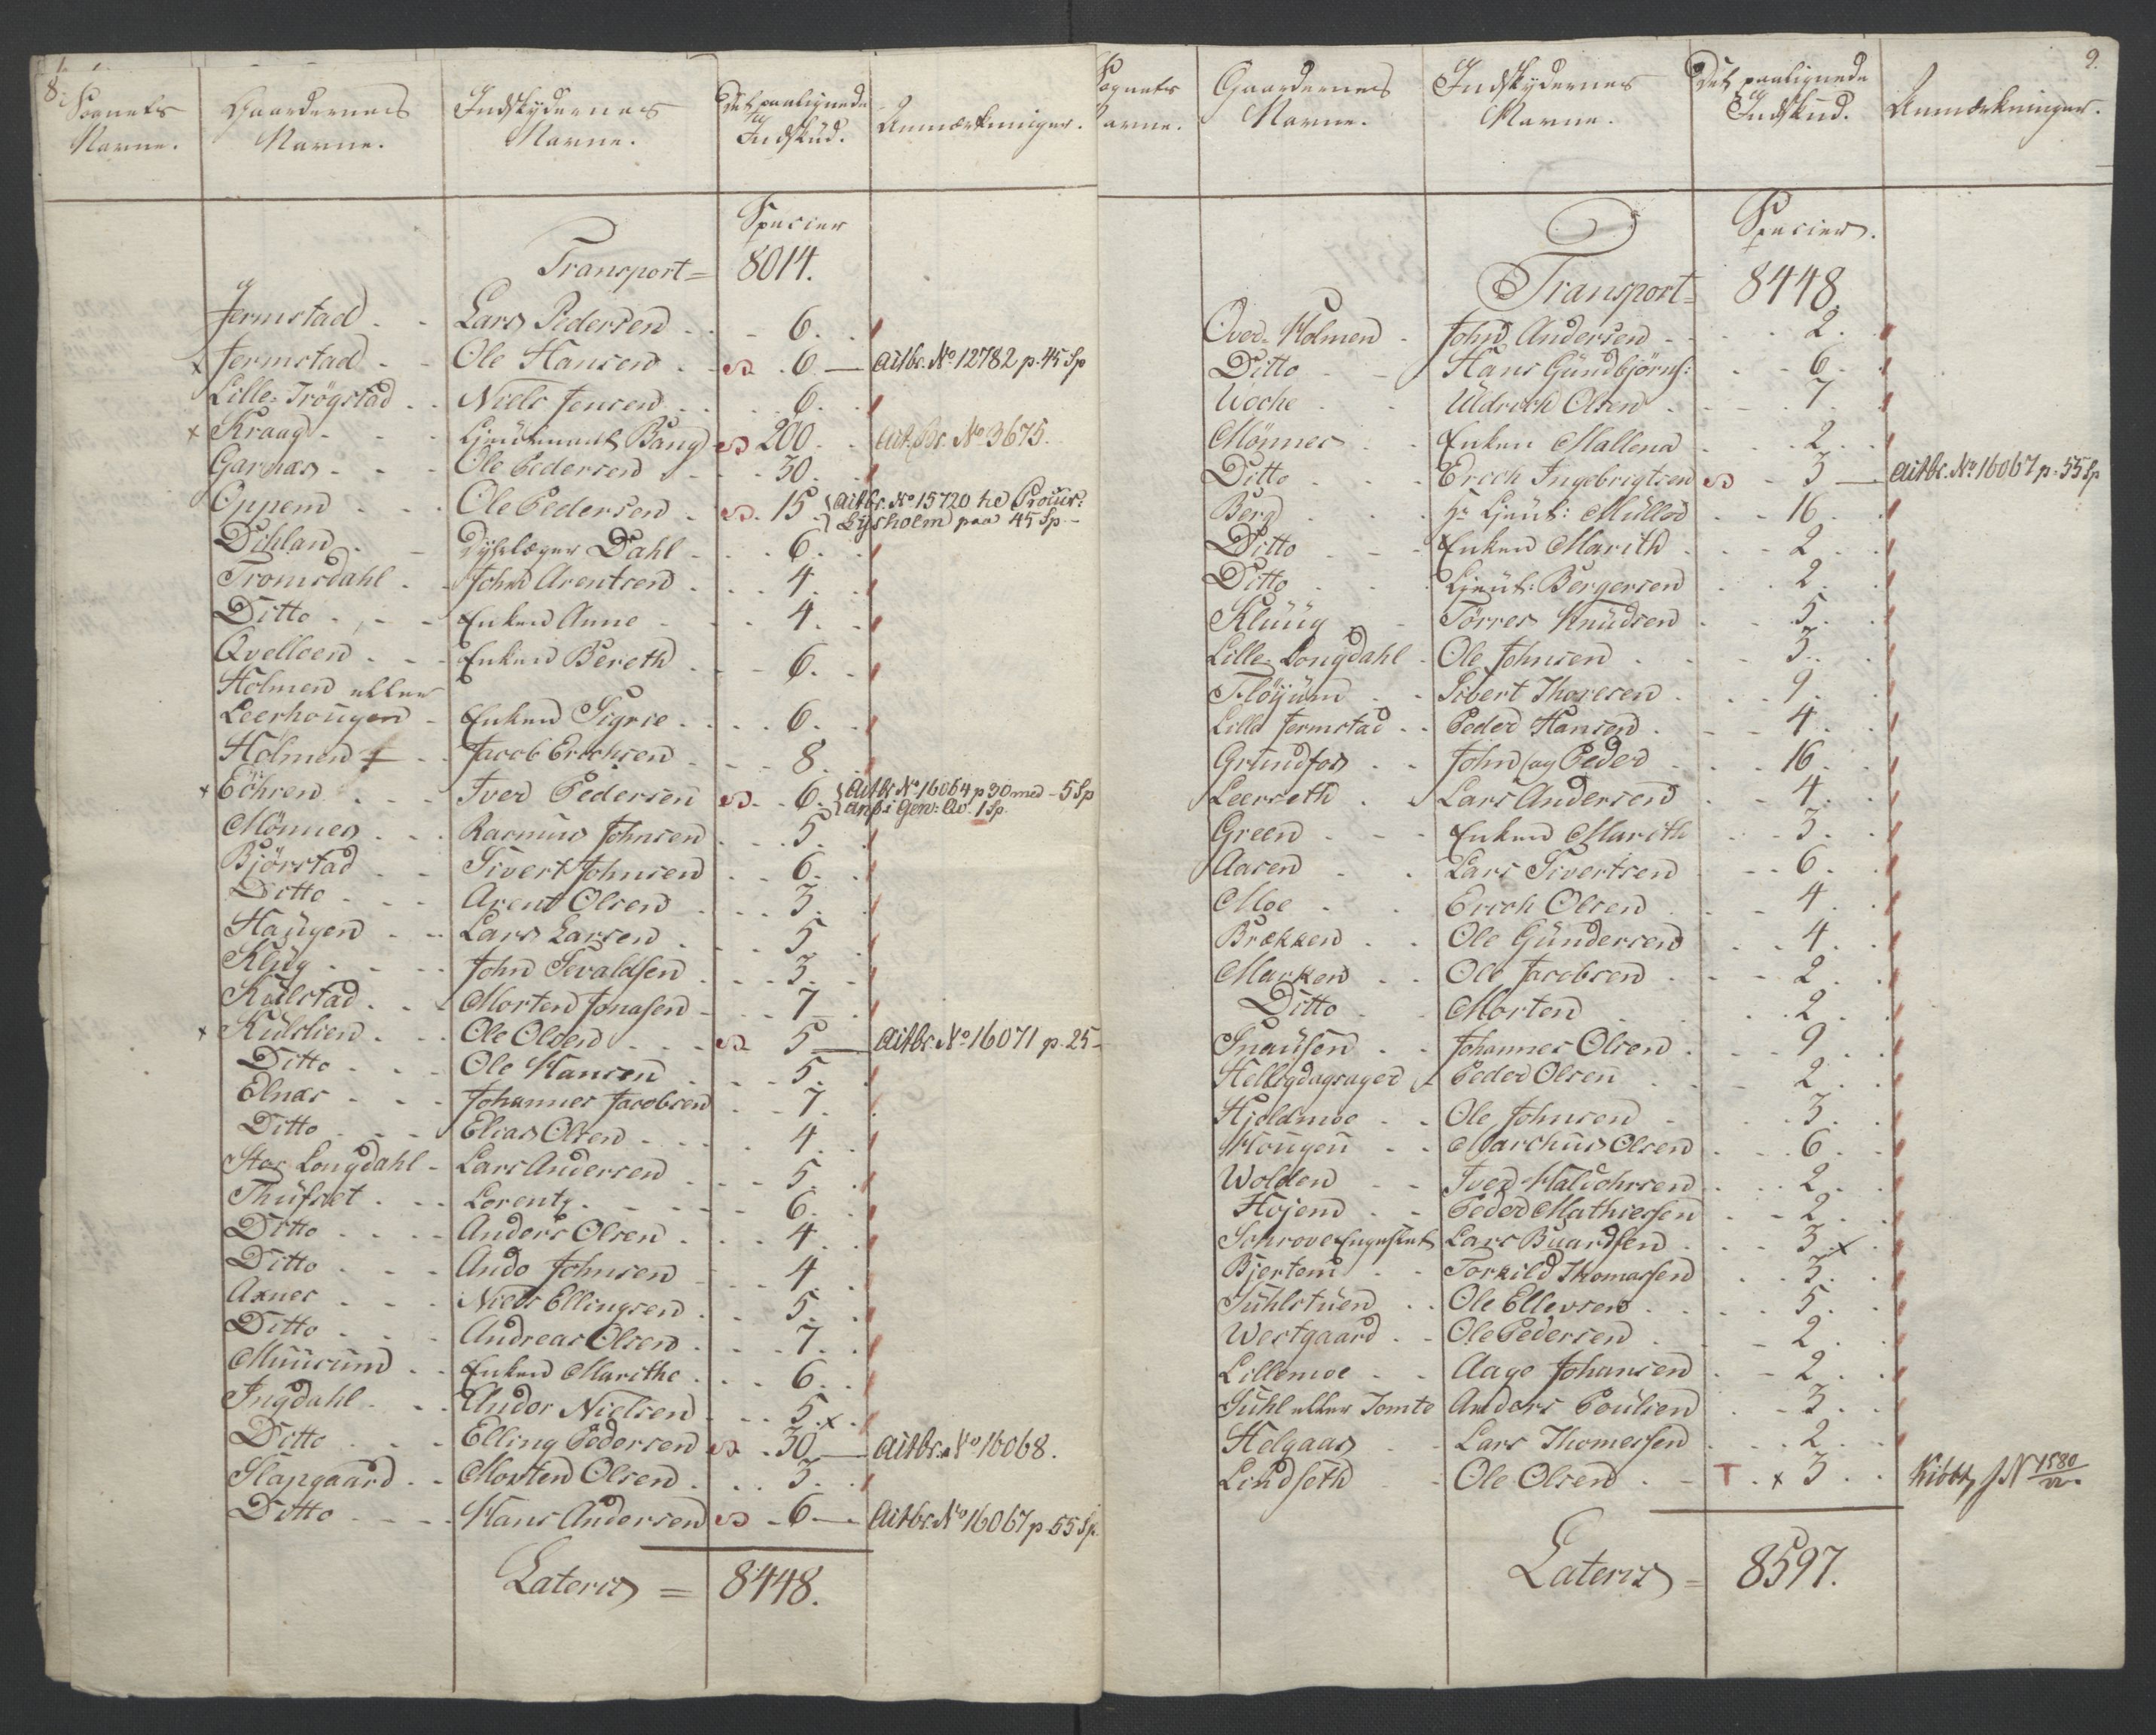 8.
Sognets Navne. Gaardernes Navne. Indskydernes Navne. Det paalignede Indskud. Anmærkninger.
Specier
Transport = 8014.
Jermstad - - Lars Pedersen - - 6.
x Jermstad - - Ole Hansen - 6. — Aitbr. No 12782 p. 45 Sp
Lille Trögstad - - Niels Jensen - - 6.
x Kraag - - - Ljeutenant Bang 200. Ait. Br. No 3675.
Garnæs - - - Ole Pedersen - - 30.
Oppem - - - Ole Pedersen - 15. Aitbr. No 15720 he Procur: Lysholm paa 45 Sp. -
Dihlan - - Dyrlæger Dahl - - 6.
Tromsdahl - - John Arentsen - - 4.
Ditto - - - Enken Anne - - 4.
Qvelloen - - - Enken Bereth - - 6.
Holmen eller
Leerhougen - Enken Sigrie - - 6.
Holmen - - Jacob Erichsen - - 8.
x Eöhren - - - Iver Pedersen - 6. Aitbr No 16064 p 30 med - 5 Sp
anf: i Gen: Qv. 1 Sp.
Mönnes - - - Rasmus Johnsen - - 5.
Björstad - - Sivert Johnsen - - 6.
Ditto - - - Arent Olsen - - 3.
Haugen - - Lars Larsen - - 5.
Klug - - - John Sevaldsen - - 3.
Kulstad - - Morten Jonasen - - 7.
x Kulslien - - Ole Olsen - - 5 — Aitbr. No 16071 p. 25 -
Ditto - - - Ole Hansen - - 5.
Elnæs - - - Johannes Jacobsen - - 7.
Ditto - - - Elias Olsen - - 4.
Stor Longdahl - Lars Andersen - - 5.
Thufset - - - Lorentz - - 6.
Ditto - - - Anders Olsen - - 4.
Ditto - - - Ando Johnsen - - 4.
Axnes - - - Niels Ellingsen - - 5.
Ditto - - - Andreas Olsen - - 7.
Muusum - - Enken Marithe - - 6.
Ingdahl - - Andor Nielsen - - 5. x
Ditto - - - Elling Pedersen - 30. — Aitbr. No 16068.
Slapgaard - - Morten Olsen - - 3.
Ditto - - - Hans Andersen - 6 — Aitbr. No 16067 p. 55 Sp.
Lateris = 8448.
9.
Sognets Navne. Gaardernes Navne. Indskydernes Navne. Det paalignede Indskud. Anmærkninger.
Specier.
Transport = 8448.
Over-Holmen - John Andersen - - 2.
Ditto - - Hans Gundbjörns: - - 6.
Woche - - Uldrich Olsen - - 7.
Mönnes - - Enken Mallena - - 2.
Ditto - - - Erich Ingebrigtsen - 3 — Aitbr. No 16067 p. 55 Sp
Berg - - - Hr Ljeut: Müller - - 16.
Ditto - - - Enken Marith - - 2.
Ditto - - - Ljeut: Bergersen - - 2.
Kluug - - Törres Knudsen - - 5.
Lille Longdahl - Ole Johnsen - - 3.
Flöyum - - Sivert Thoresen - - 9.
Lille Jermstad - - Peder Hansen - - 4.
Grundfos - - John og Peder - - 16.
Leerseth - - Lars Andersen - - 4.
Green - - - Enken Marith - - 3.
Aasen - - Lars Sivertsen - - 6.
Moe - - Erich Olsen - - 4.
Brækken - - Ole Gundersen - - 4.
Marken - - Ole Jacobsen - - 2.
Ditto - - Morten - - 2.
Snausen - - Johannes Olsen - - 9.
Helligdagsager Peder Olsen - - 2.
Hjeldmoe - - Ole Johnsen - - 3.
Hougen - - Marchus Olsen - - 6.
Wolden - - Iver Haldohrsen - - 2.
Höjem - - Peder Mathiesen - - 2.
Schrove Lars Buardsen - - 3. x
Bjertem - - Torkild Thomassen - - 3.
Suhlstuen - - Ole Ellevsen - - 5.
Westgaard - - Ole Pedersen - - 2.
Lillemoe - - Aage Johansen - - 2.
Suhl eller Tomte Anders Poulsen - - 3.
Helgaas - - Lars Thomessen - - 2.
Lindseth - - Ole Olsen - T. x 3.
Lateris = 8597.